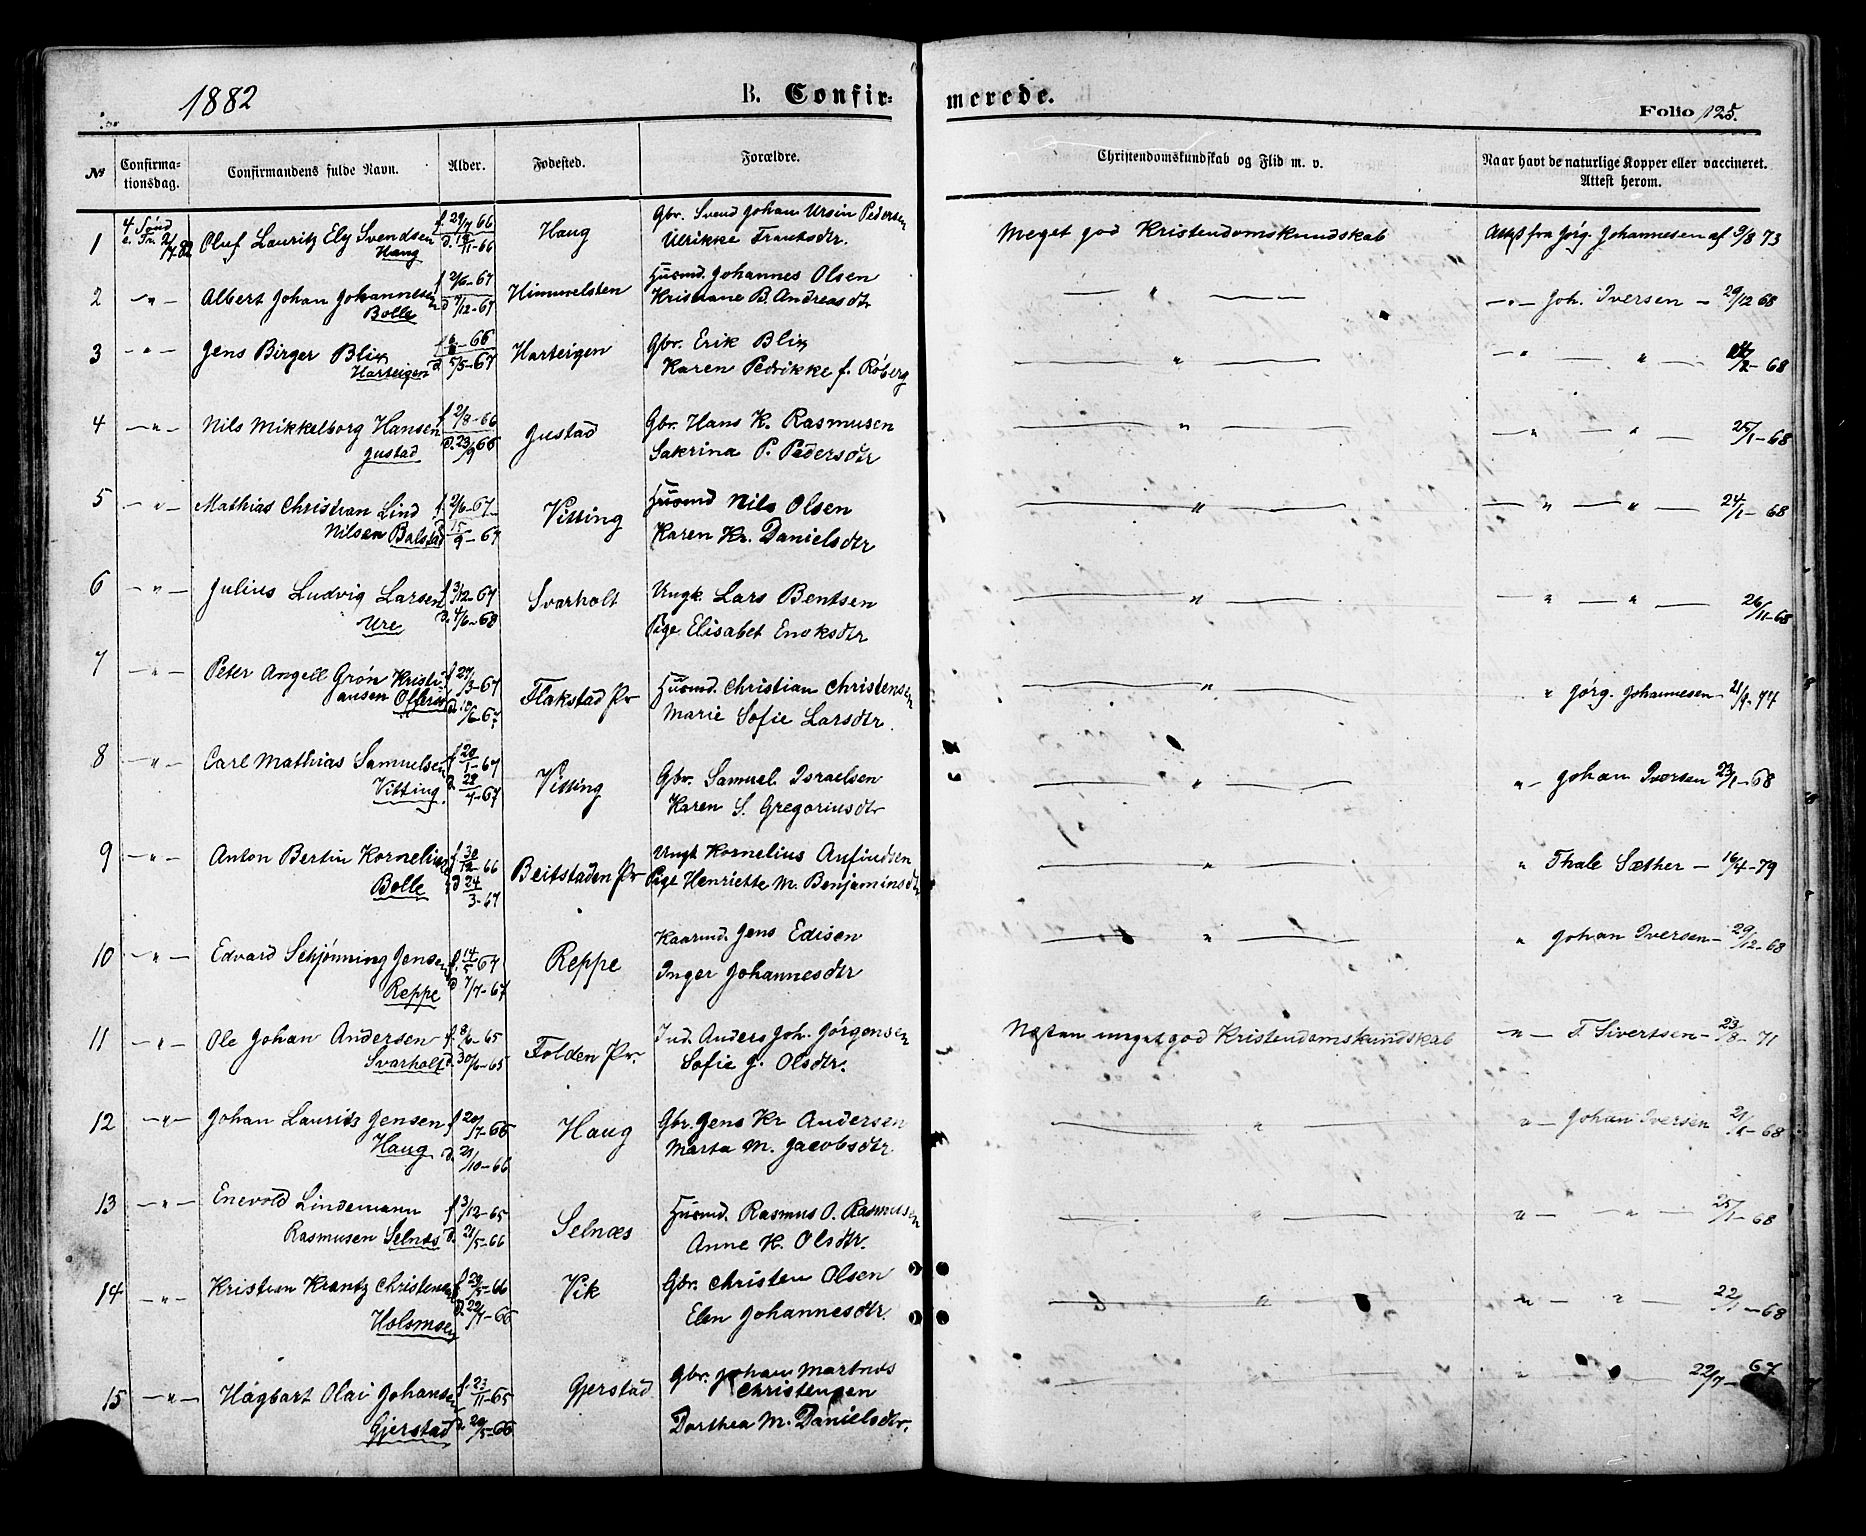 1882
B. Confir=
merede.
Folio 125.
№
Confirma-
tionsdag.
Confirmandens fulde Navn.
Alder.
Fødested.
Forældre.
Christendomskundskab og Flid m. v.
Naar havt de naturlige Kopper eller vaccineret.
Attest herom.
1 4 Sønd e. Tr. 2/7 82 Oluf Lauritz Ely Svendsen f 29/7 66 Haug Gbr. Svend Johan Ursin Pedersen Meget god Kristendomskundskab Attest fra Jørg. Johannesen af 9/8 73
Haug Ulrikke Trautsdtr.
2 — " — Albert Johan Johannesen f 2/6-67 Himmelsten Husmd. Johannes Olsen — " — — " — Joh. Iversen — 29/12 68
Bolle d 7/12-67 Kristiane B. Andreasdtr
3 — " — Jens Birger Blix Harteigen Gbr. Erik Blix — " — — " — " — 68
Harteigen d 5/5-67 Karen Pedrikke f. Røberg
4 — " — Nils Mikkelborg Hansen f 2/8-66 Gustad Gbr. Hans K. Rasmusen — " — — " — " — 25/1-68
Gustad d. 23/9 66 Sakrina P. Pedersdtr
5 — " — Mathias Christian Lind f. 2/6-67 Vitting Husmd Nils Olsen — " — — " — " — 24/1-68
Nilsen Balstad d 15/9-67 Karen Kr. Danielsdtr
6 — " — Julius Ludvig Larsen f 3/12-67 Svarholt Ungk. Lars Bentsen — " — " — " — 26/11-68
Ure d. 4/6-68 Pige Elisabet Enoksdtr
7 — " — Peter Angell Grøn Kristi- f 27/3-67 Flakstad Pr Husmd. Christian Christensen — " — " Jørg. Johannesen
ansen Offersø d. 10/6-67 Marie Sofie Larsdtr.
8 — " — Carl Mathias Samuelsen f 20/1-67 Vitting Gbr. Samuel Israelsen — " — " — Johan Iversen 23/1-68
Vitting d. 28/4-67 Karen S. Gregoriusdtr
9 — " — Anton Bertin Kornelius f. 30/12-66 Beitstaden Pr Ungk Kornelius Anfindsen — " — " Thale Sæther — 16/4-79
Bolle d 24/3-67 Pige Henriette M. Benjaminsdtr
10 — " — Edvard Schjønning Jensen f. 14/5 67 Reppe Kaarmd. Jens Edisen — " — " Johan Iversen — 29/12-68
Reppe d 7/7-67 Inger Johannesdtr
11 — " — Ole Johan Andersen f. 8/6-65 Folden Pr. Ind. Anders Joh. Jørgensen Næsten meget god Kristendomskundskab — " — T Sivertsen — 23/8-71
Svarholt d. 30/6-65 Sofie J. Olsdtr.
12 — " — Johan Laurids Jensen f 20/7-66 Haug Gbr. Jens Kr Andersen — " — " — Johan Iversen 68
Haug d. 21/10-66 Marta M. Jacobsdtr
13 — " — Enevold Lindemann f 3/12-65 Selnæs Husmd. Rasmus O. Rasmussen — " — " — " — 25/1-68
Rasmusen Selnæs d. 21/5-66 Anne K. Olsdtr.
14 — " — Kristian Krantz Christensen f 29/5-66 Vik Gbr. Christen Olsen — " — " — " — 22/1-68
Holsmsen d. 22/7-66 Elen Johannesdtr.
15 — " — Hagbart Olai Johansen f. 23/11-65 Gjerstad Gbr. Johan Martnus — " — " — " — 22/7-67
Christensen
Gjerstad d 20/5-66 Dorthea M. Danielsdtr.